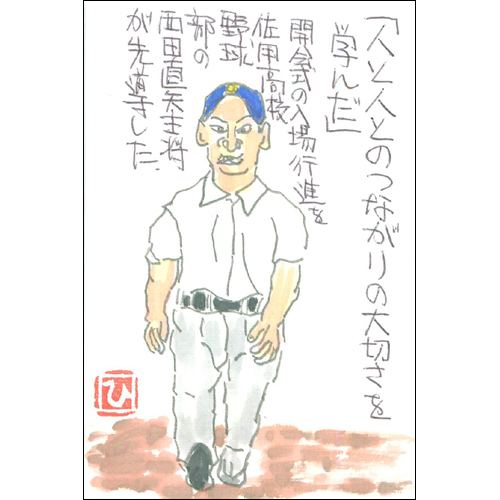 「人と人とのつながりの大切さを
学んだ」
開会式の入場行進を
佐用高校
野球
部の
西田直矢主将
が先導した。
ひ